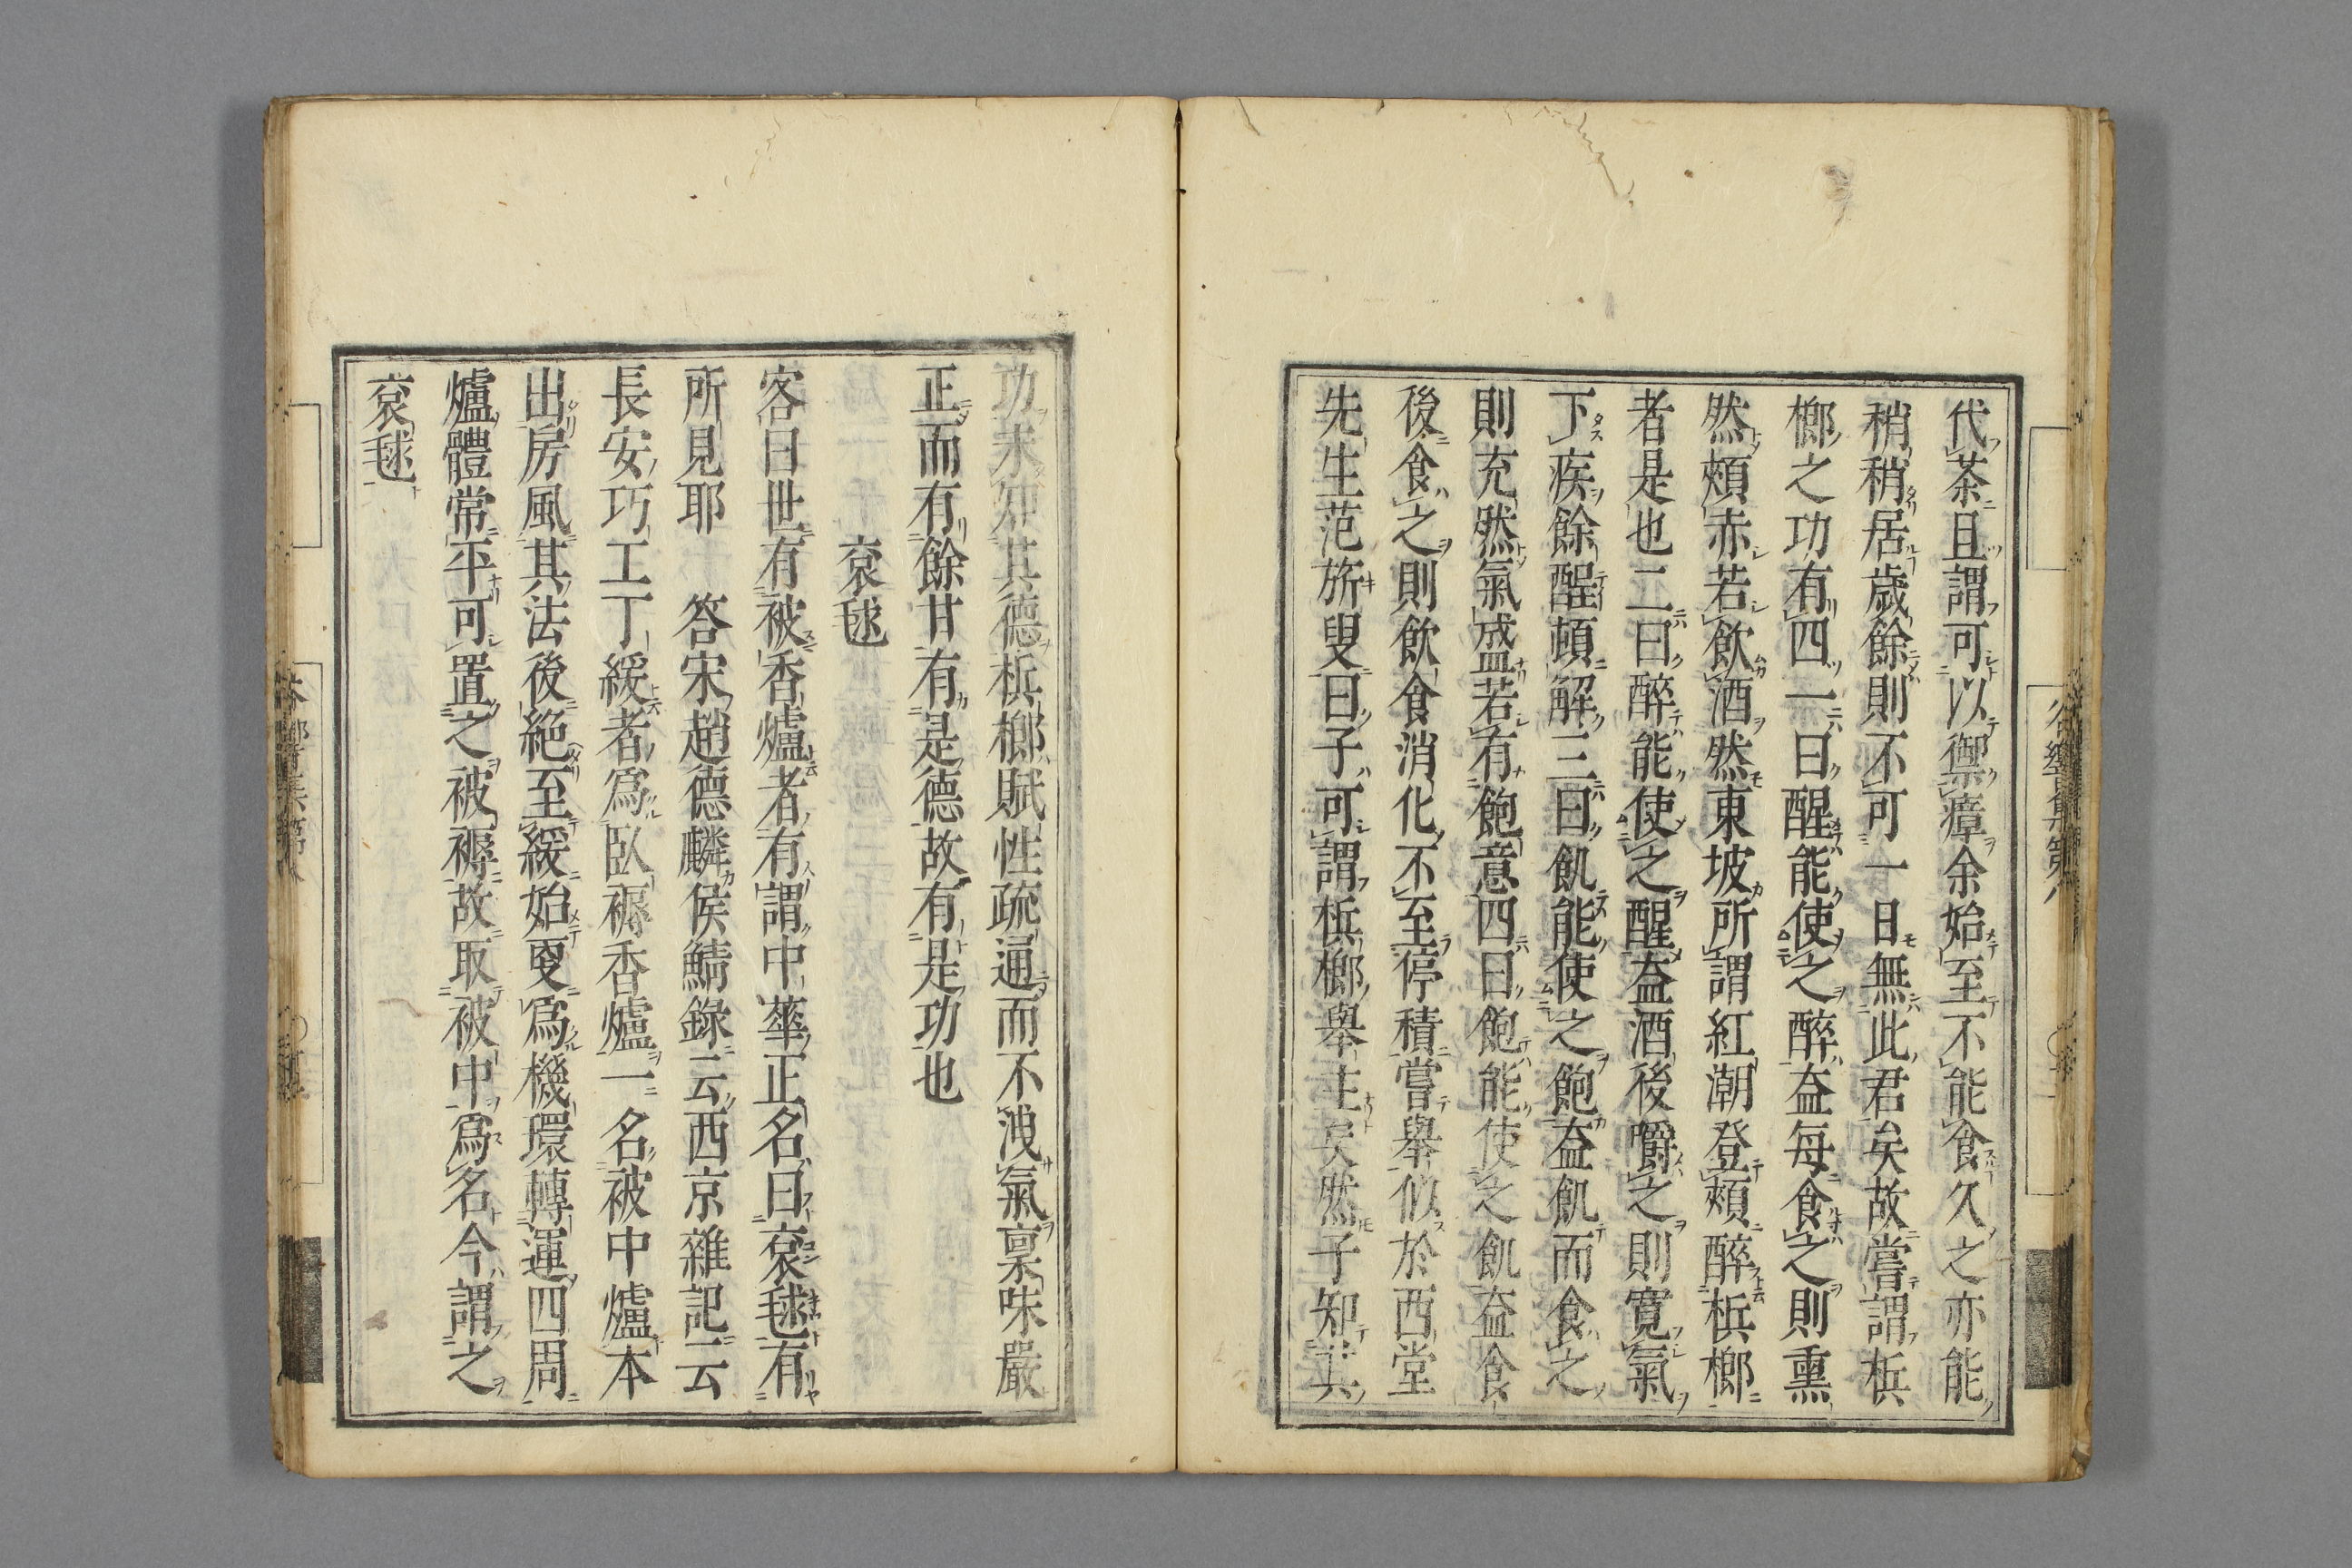 代茶且謂可以禦瘴余始至不能食久之亦能
稍稍居歲餘則不可一日無此君矣故嘗謂梹
榔之功有四一曰醒能使之醉益每食之則熏
然頰赤若飲酒然東坡所謂紅潮登頰醉梹榔
者是也二曰醉能使之醒益酒後嚼之則寬氣
下疾餘酲頓解三曰飢能使之飽益飢而食之
則充然氣盛若有飽意四曰飽能使之飢益食
後食之則飲食消化不至停積嘗舉似於西堂
先生范旂叟曰子可謂梹榔舉主矣然子知其
功未知其德梹榔賦性疏通而不洩氣稟味嚴
正而有餘甘有是德故有是功也
袞毬
客曰世有被香爐者有謂中華正名曰袞毬有
所見耶　答宋趙德麟侯鯖錄云西京雜記云
長安巧工丁緩者爲臥褥香爐一名被中爐本
出房風其法後絕至緩始更爲機環轉運四周
爐體常平可置之被褥故取被中爲名今謂之
袞毬